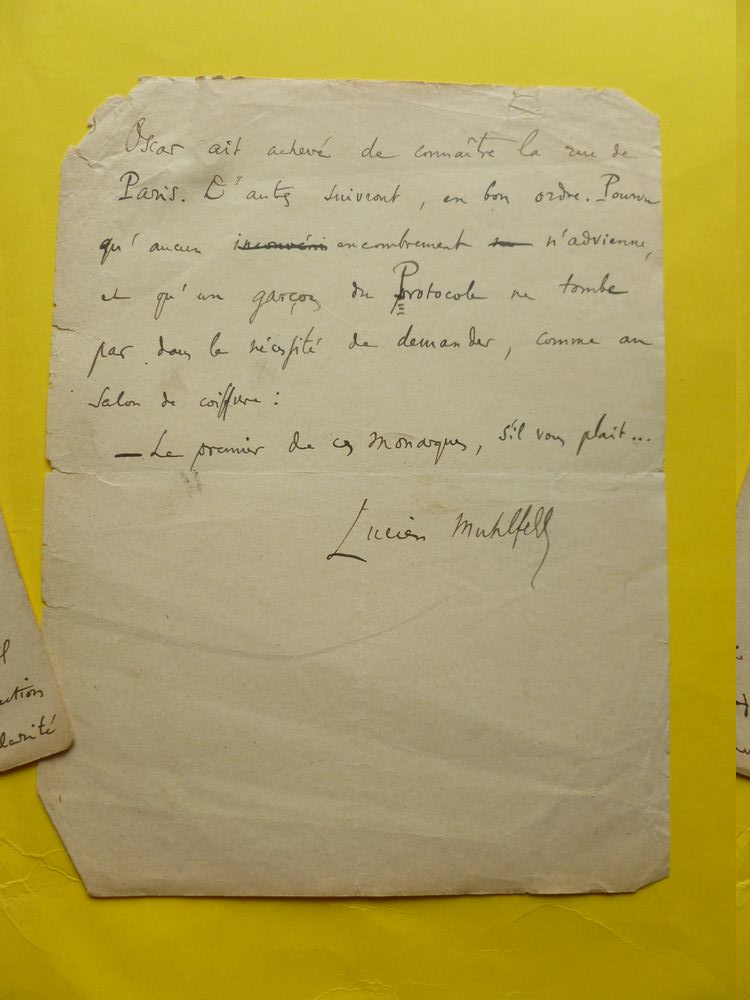 Oscar ait achevé de connaître la rue de
Paris. D'autres suivront, en bon ordre. Pourvu
qu'aucun encombrement n'advienne,
et qu'un garçon du Protocole ne tombe
pas dans la nécessité de demander, comme au
salon de coiffure :
— Le premier de ces monarques, s'il vous plait...
Lucien Muhlfeld